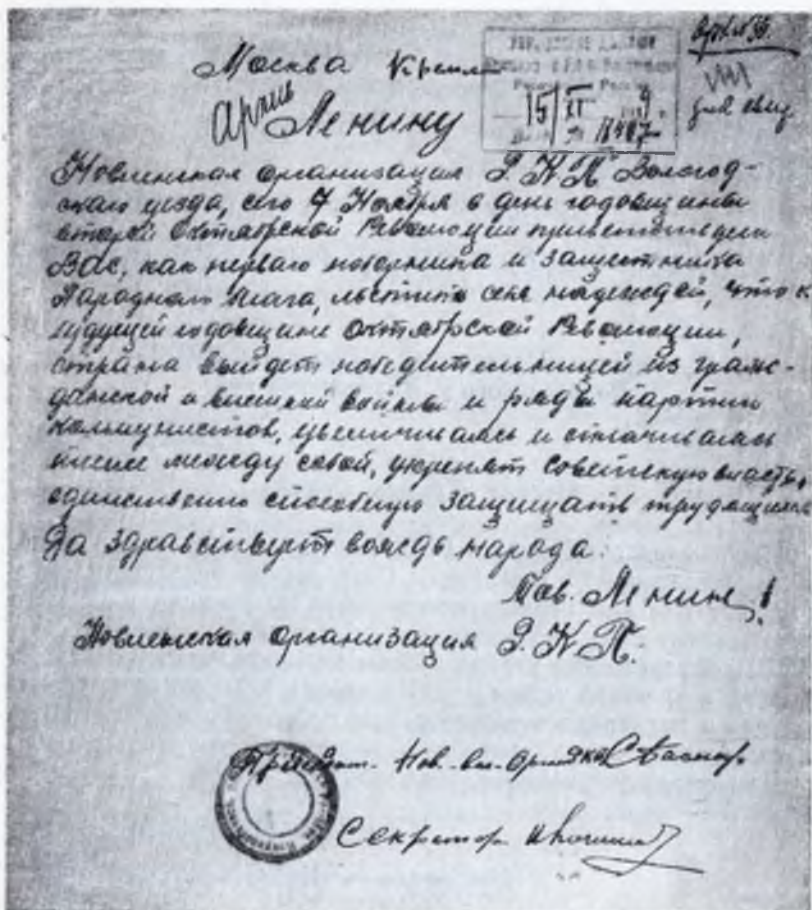 Арх. № 36.
Москва Кремль
Архив Ленину
15 XI 9
для свед
Новленская организация Р.К.П. Вологод-
скаго уезда, сего 7 Ноября в день годовщины
второй Октябрской Революции приветствует
Вас, как перваго поборника и защитника
Народного блага, льстит себя надеждой, что к
будущей годовщине Октябрской Революции,
страна выйдет победительницей из граж-
данской и внешней войны и ряды партии
коммунистов, увеличиваясь и сплачиваясь
между собой, укрепят Советскую власть,
единственно способную защищать трудящихся
Да здравствует вождь народа.
Тов. Ленин!
Новленская организация Р.К.П.
Президент. Нов. вол.
Секретарь